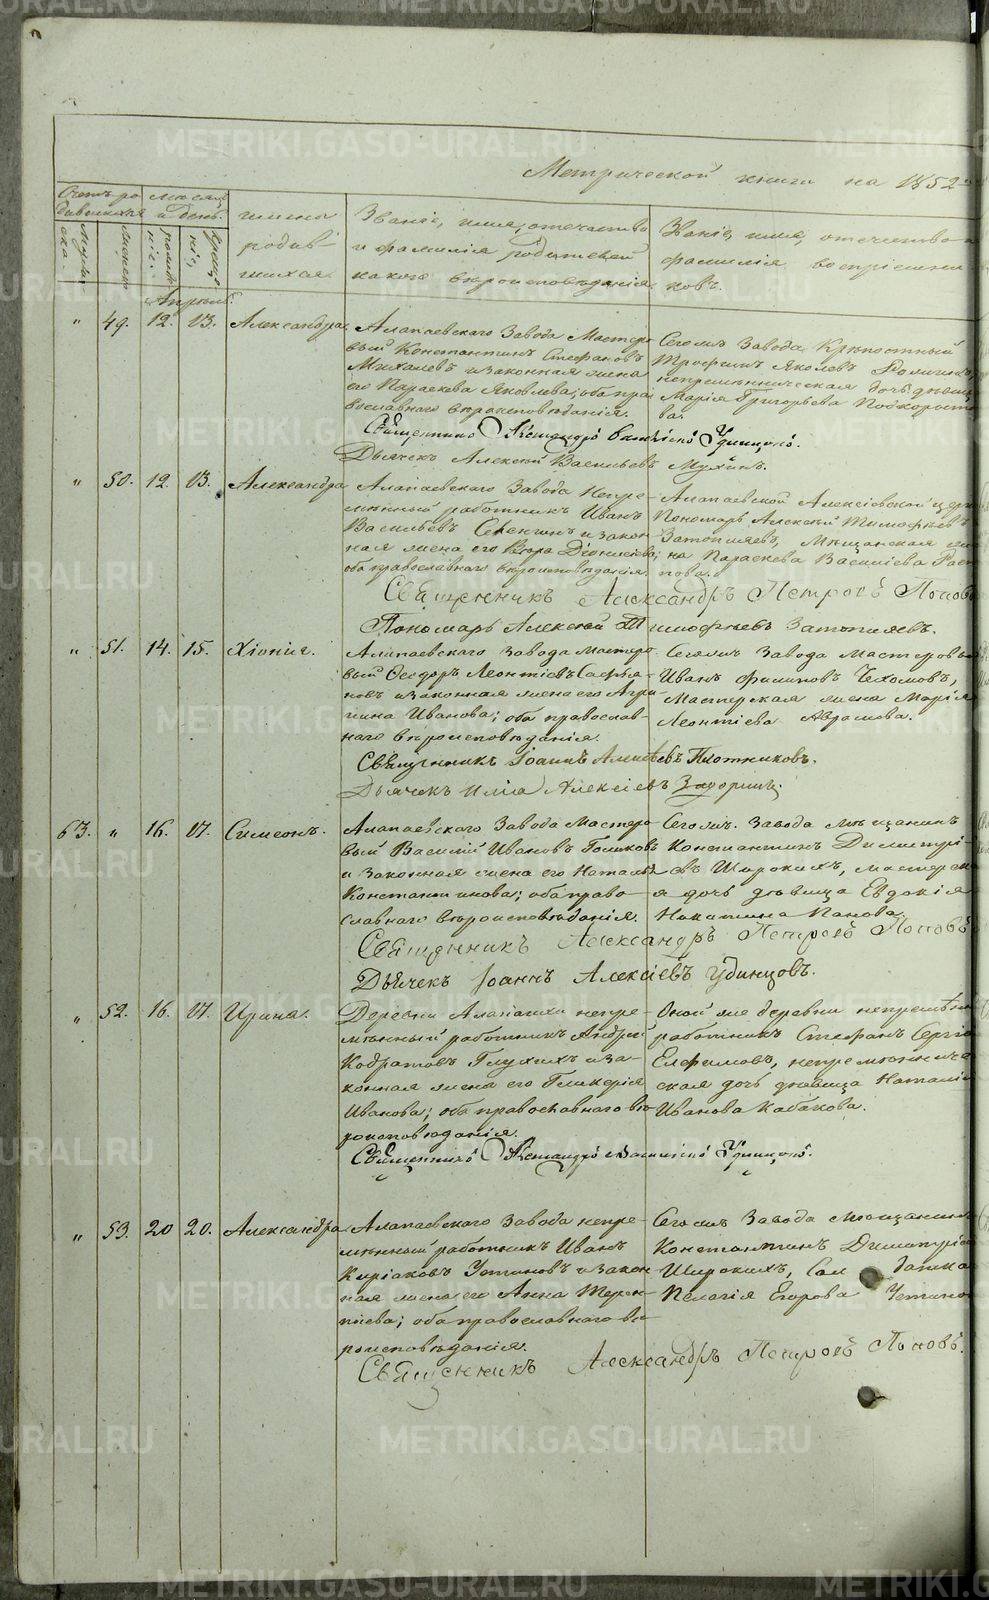 Метрической книги на 1852
Счетъ родившихся
Месяцъ и день.
Мужеска.
Женска.
рожденія.
крещенія.
имена родившихся.
Званіе, имя, отечество
и фамилія родителей
какого вероисповѣданія
Званіе, имя, отечество и
фамилія воспріемни
ковъ.
Апрѣль.
" 49. 12. 13. Александра.
Алапаевскаго Завода Мастеро
вый Константинъ Стефановъ
Михалевъ и законная жена
его Параскева Яковлева; оба пра
вославнаго вѣроисповѣданія.
Сегожъ Завода Крѣпостный
Трофимъ Яковлевъ
непремѣнническая дочь дѣвица
Марія Григорьева Подкоры
ва.
Священникъ Александръ Удинцовъ.
Дьячекъ Алексѣй Васильевъ Мухинъ.
" 50. 12. 13. Александра
Алапаевскаго Завода Непре-
мѣнный работникъ Иванъ
Васильевъ и закон-
ная жена его Діонисіева;
оба православнаго вѣроисповѣданія.
Алапаевской Алексіевской церк
Пономарь Алексѣй Тимофѣевъ
Затопляевъ, Мѣщанская
на Параскева Василіева
пова.
Священникъ Александръ Петровъ Поповъ
Пономарь Алексѣй Тимофѣевъ Затопляевъ.
" 51. 14. 15. Хіонія.
Алапаевскаго Завода Мастеро
вый Ѳеодоръ Леонтіевъ Сафья-
новъ и законная жена его Агри-
пина Иванова; оба православ-
наго вѣроисповѣданія.
Сегожъ Завода Мастеровый
Иванъ Филиповъ Чехомовъ,
Мастерская жена Марія
Леонтіева Аврамова.
Священникъ Іоаннъ Плотниковъ.
Дьячекъ Илія Алексіевъ
63. " 16. 17. Симеонъ.
Алапаевскаго Завода Мастеро
вый Василій Ивановъ Голиковъ
и Законная жена его Наталья
Константинова; оба право-
славнаго вѣроисповѣданія.
Сегожъ. Завода мѣщанинъ
Константинъ Димитрі-
евъ Широкихъ, мастерска
я дочь дѣвица Евдокія
Никитина Панова.
Священникъ Александръ Петровъ Поповъ
Дьячекъ Іоаннъ Алексіевъ Удинцовъ.
" 52. 16. 17. Ирина.
Деревни Алапаихи непре-
мѣнный работникъ Андрей
Кодратовъ Глухихъ и за-
конная жена его Гликерія
Иванова; оба православнаго вѣ-
роисповѣданія.
Оной же деревни непремѣнн
работникъ Стефанъ Сергіе
Елфимовъ, непремѣнниче
ская дочь дѣвица Наталія
Иванова Кабакова.
Священникъ Александръ Удинцовъ.
" 53. 20 20. Александра
Алапаевскаго Завода непре-
мѣнный работникъ Иванъ
Киріаковъ Устиновъ и закон-
ная жена его Анна Терен-
тіева; оба православнаго вѣ-
роисповѣданія.
Сегожъ Завода мѣщанинъ
Константинъ Димитріевъ
Широкихъ, Сол датка
Пелагія Егорова Устино
Священникъ Александръ Петровъ Поповъ.
METRIKI.GASO-URAL.RU